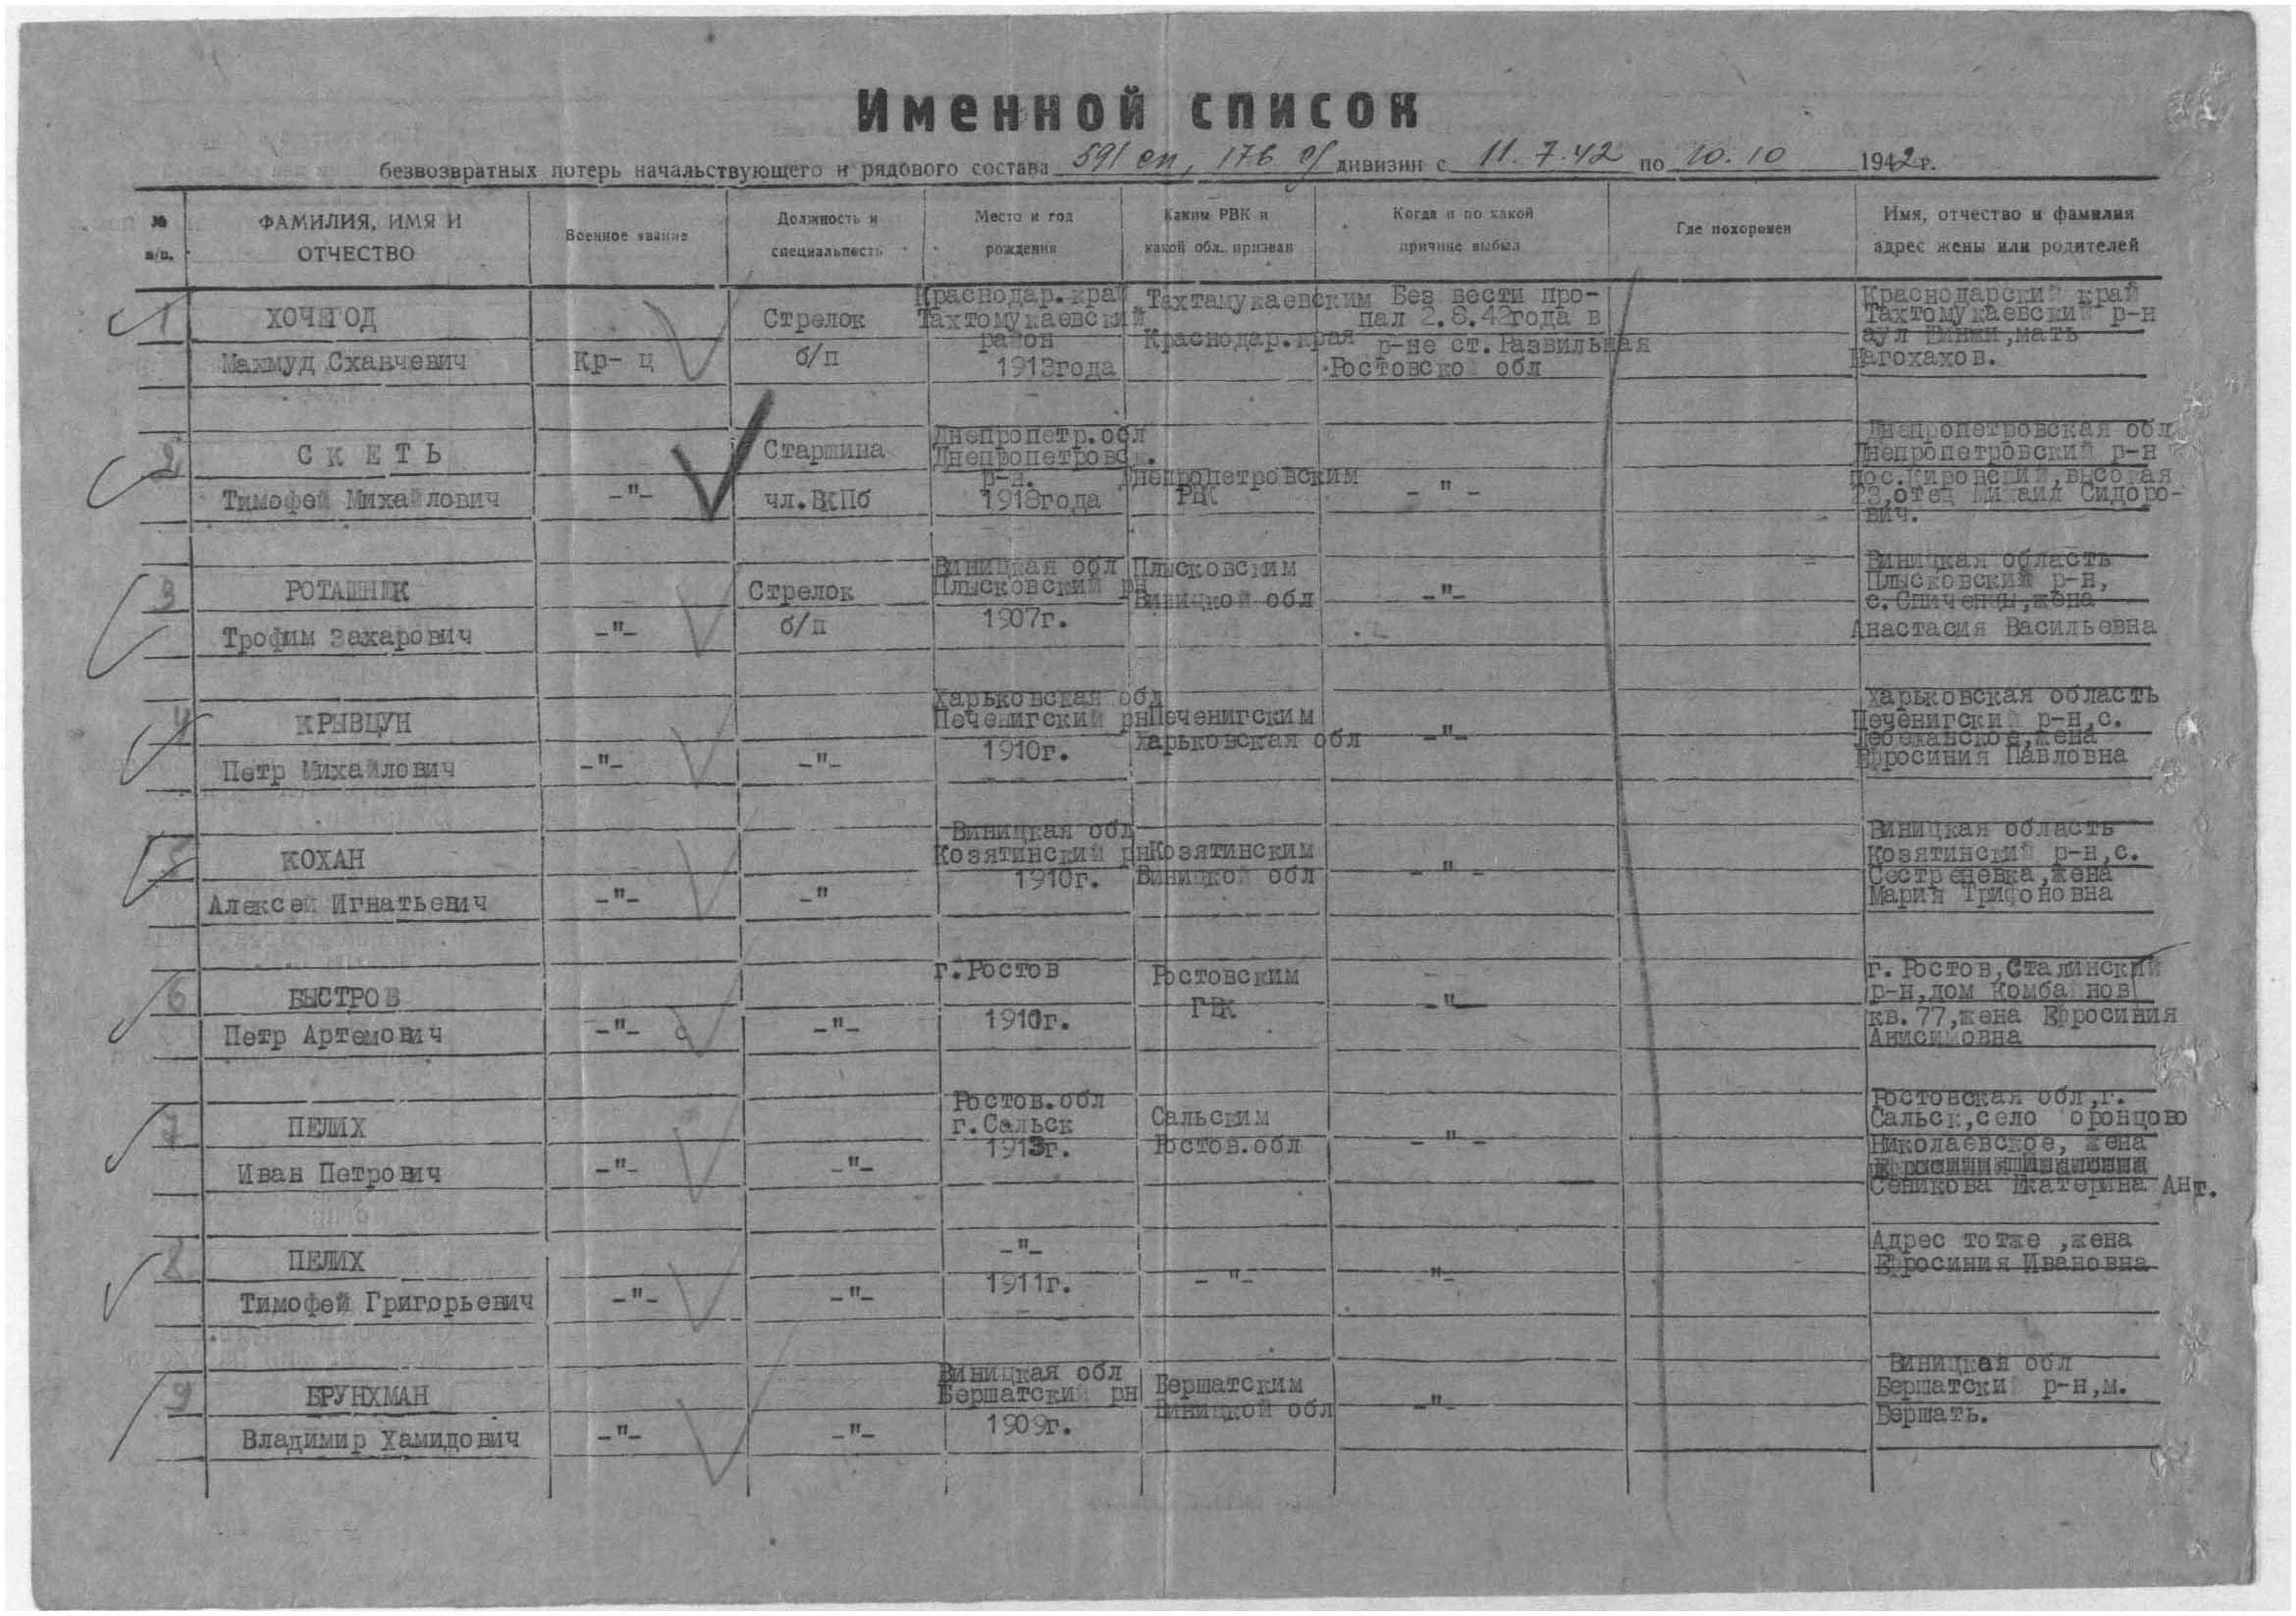 Именной список
безвозвратных потерь начальствующего и рядового состава 591 сп, 176 сд дивизии с 11.7.42 по 10.10 1942 г.
№ п/п.
ФАМИЛИЯ, ИМЯ И ОТЧЕСТВО
Военное звание
Должность и специальность
Место и год рождения
Каким РВК и какой обл. призван
Когда и по какой причине выбыл
Где похоронен
Имя, отчество и фамилия адрес жены или родителей
1
ХОЧЕГОД
Махмуд Сханчевич
Кр-ц
Стрелок
б/п
Краснодар.край
Тахтомукаевский
район
1913года
Тахтамукаевским
Краснодар.края
Без вести про-
пал 2.8.42года в
р-не ст.Развильная
Ростовской обл
Краснодарский край
Тахтомукаевский р-н
аул мать
Нагохахов.
2
СКЕТЬ
Тимофей Михайлович
-"-
Старшина
чл.ВКПб
Днепропетр.обл
Днепропетровск.
р-н.
1918года
Днепропетровским
РВК
-"-
Днепропетровская обл
Днепропетровский р-н
пос.Кировский,высокая
23,отец Михаил Сидоро-
вич.
3
РОТАШНЮК
Трофим Захарович
-"-
Стрелок
б/п
Виницкая обл
Плысковский рн
1907г.
Плысковским
Виницкой обл
-"-
Виницкая область
Плысковский р-н,
с.Спиченцы,жена
Анастасия Васильевна
4
КРЫВЦУН
Петр Михайлович
-"-
-"-
Харьковская обл
Печенигский рн
1910г.
Печенигским
Харьковская обл
-"-
Харьковская область
Печенигский р-н,с.
жена
Ефросиния Павловна
5
КОХАН
Алексей Игнатьевич
-"-
-"
Виницкая обл
Козятинский рн
1910г.
Козятинским
Виницкой обл
-"-
Виницкая область
Козятинский р-н,с.
Сестреневка,жена
Мария Трифоновна
6
БЫСТРОВ
Петр Артемович
-"-
-"-
г.Ростов
1910г.
Ростовским
ГВК
-"-
г.Ростов,Сталинский
р-н,дом Комбайнов
кв.77,жена Ефросиния
Анисимовна
7
ПЕЛИХ
Иван Петрович
-"-
-"-
Ростов.обл
г.Сальск
1913г.
Сальским
Ростов.обл
-"-
Ростовская обл,г.
Сальск,село оронцово
Николаевское, жена
Сеникова Екатерина Ант.
8
ПЕЛИХ
Тимофей Григорьевич
-"-
-"-
-"-
1911г.
-"-
-"-
Адрес тотже ,жена
Ефросиния Ивановна
9
БРУНХМАН
Владимир Хамидович
-"-
-"-
Виницкая обл
Бершатский рн
1909г.
Бершатским
Виницкой обл
-"-
Виницкая обл
Бершатский р-н,м.
Бершать.